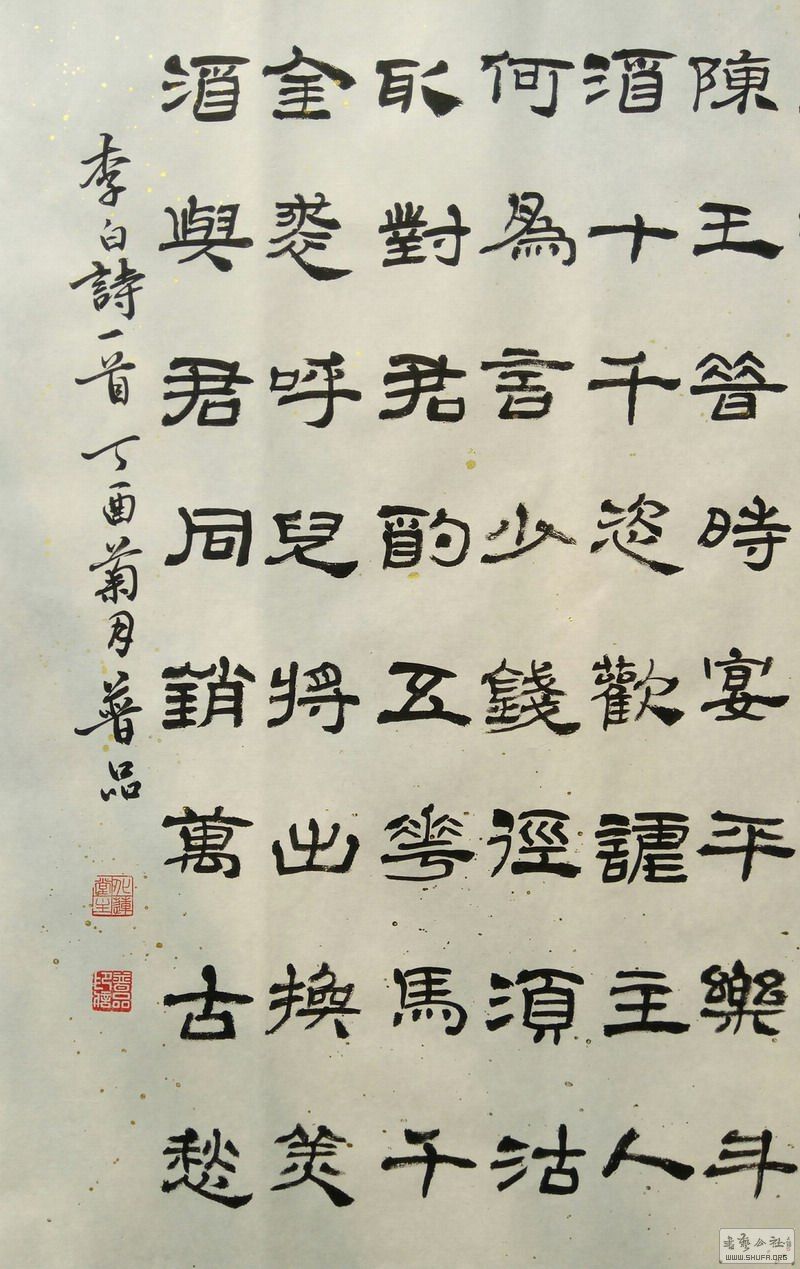 陳王昔時宴平樂斗
酒十千恣歡謔主人
何為言少錢徑須沽
取對君酌五花馬千
金裘呼兒將出換美
酒與君同銷萬古愁
李白詩一首丁酉菊月普品
普品印信
書藝公社
WWW.SHUFA.ORG